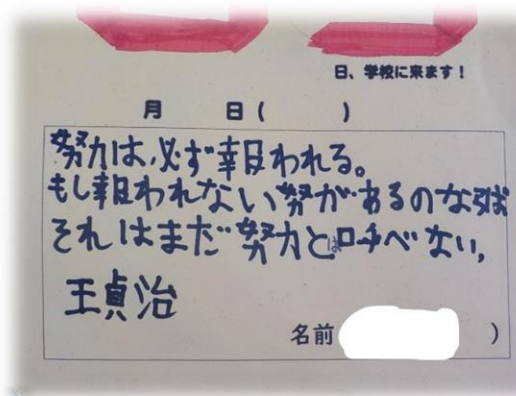 日、学校に来ます！
月 日( )
努力は必ず報われる。
もし報われない努があるのならば
それはまだ努力とは呼べない,
王貞治
名前 )